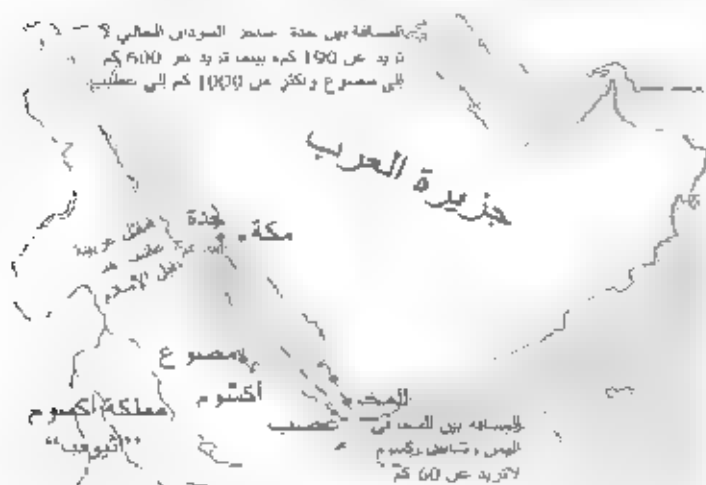 المسافة بين جدة ساحل السودان الحالي لا
تزيد عن 190 كم، بينما تزيد عن 600 كم
إلى مصوع وأكثر من 1000 كم إلى عصب
جزيرة العرب
جدة
مكة
قبل الإسلام
مصوع
أكسوم
مملكة أكسوم
المخا
عصب
المسافة بين المخا في
اليمن
لا تزيد عن 60 كم